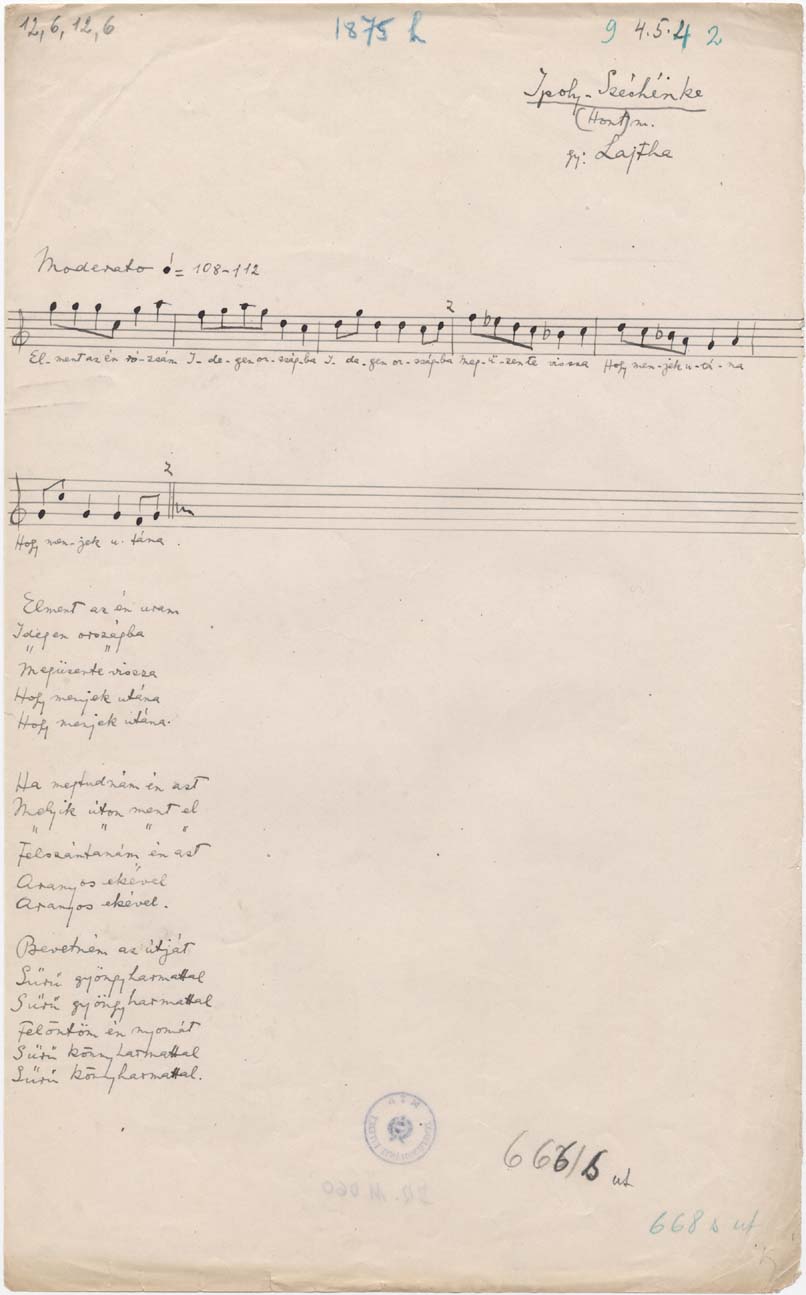 12, 6, 12, 6
1875 h
9 4.5.42
Ipoly-Széchénke
(Hont) m.
gy: Lajtha
Moderato = 108-112
2
El- ment az én ró-zsám I- de- gen or- ság-ba I- de- gen or- ság-ba meg- ü- zente vissza Hogy men- jek u- tá- na
2
Hogy men- jek u- tána.
Elment az én uram
Idegen országba
" "
Megüzente vissza
Hogy menjek utána
Hogy menjek utána.
Ha megtudnám én azt
Melyik úton ment el
" " " "
Felszántanám én azt
Aranyos ekével
Aranyos ekével.
Bevetném az útját
Sűrű gyöngyharmattal
Sűrű gyöngyharmattal
Felöntöm én nyomát
Sűrű könnyharmattal
Sűrű könnyharmattal.
666/b ut
668 b ut